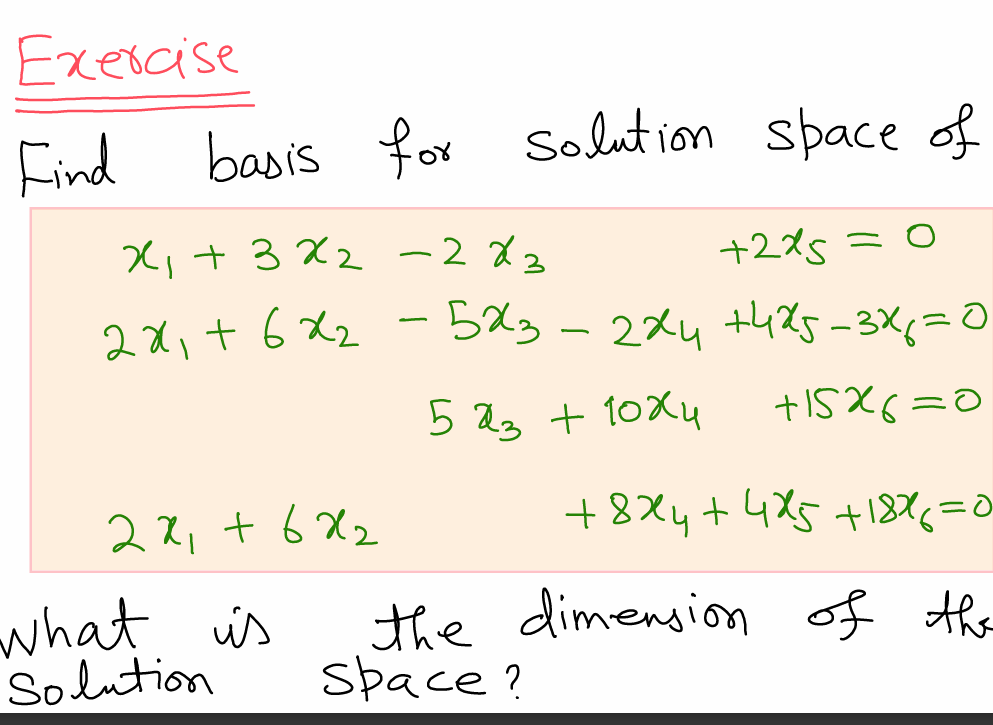 Exercise
Find basis for solution space of
x₁ + 3x₂ - 2x₃ +2x₅ = 0
2x₁ + 6x₂ - 5x₃ - 2x₄ +4x₅ - 3x₆ = 0
5x₃ + 10x₄ +15x₆ = 0
2x₁ + 6x₂ +8x₄ + 4x₅ +18x₆ = 0
What is the dimension of the
solution space?